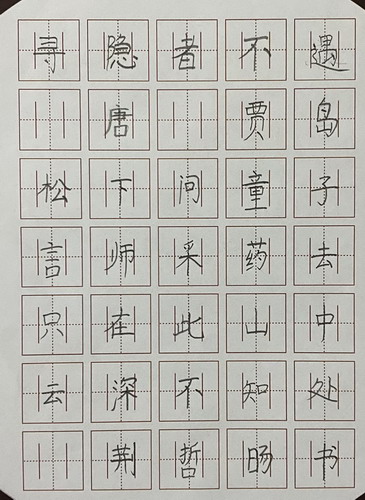 寻隐者不遇
唐 贾岛
松下问童子
言师采药去
只在此山中
云深不知处
荆哲旸书